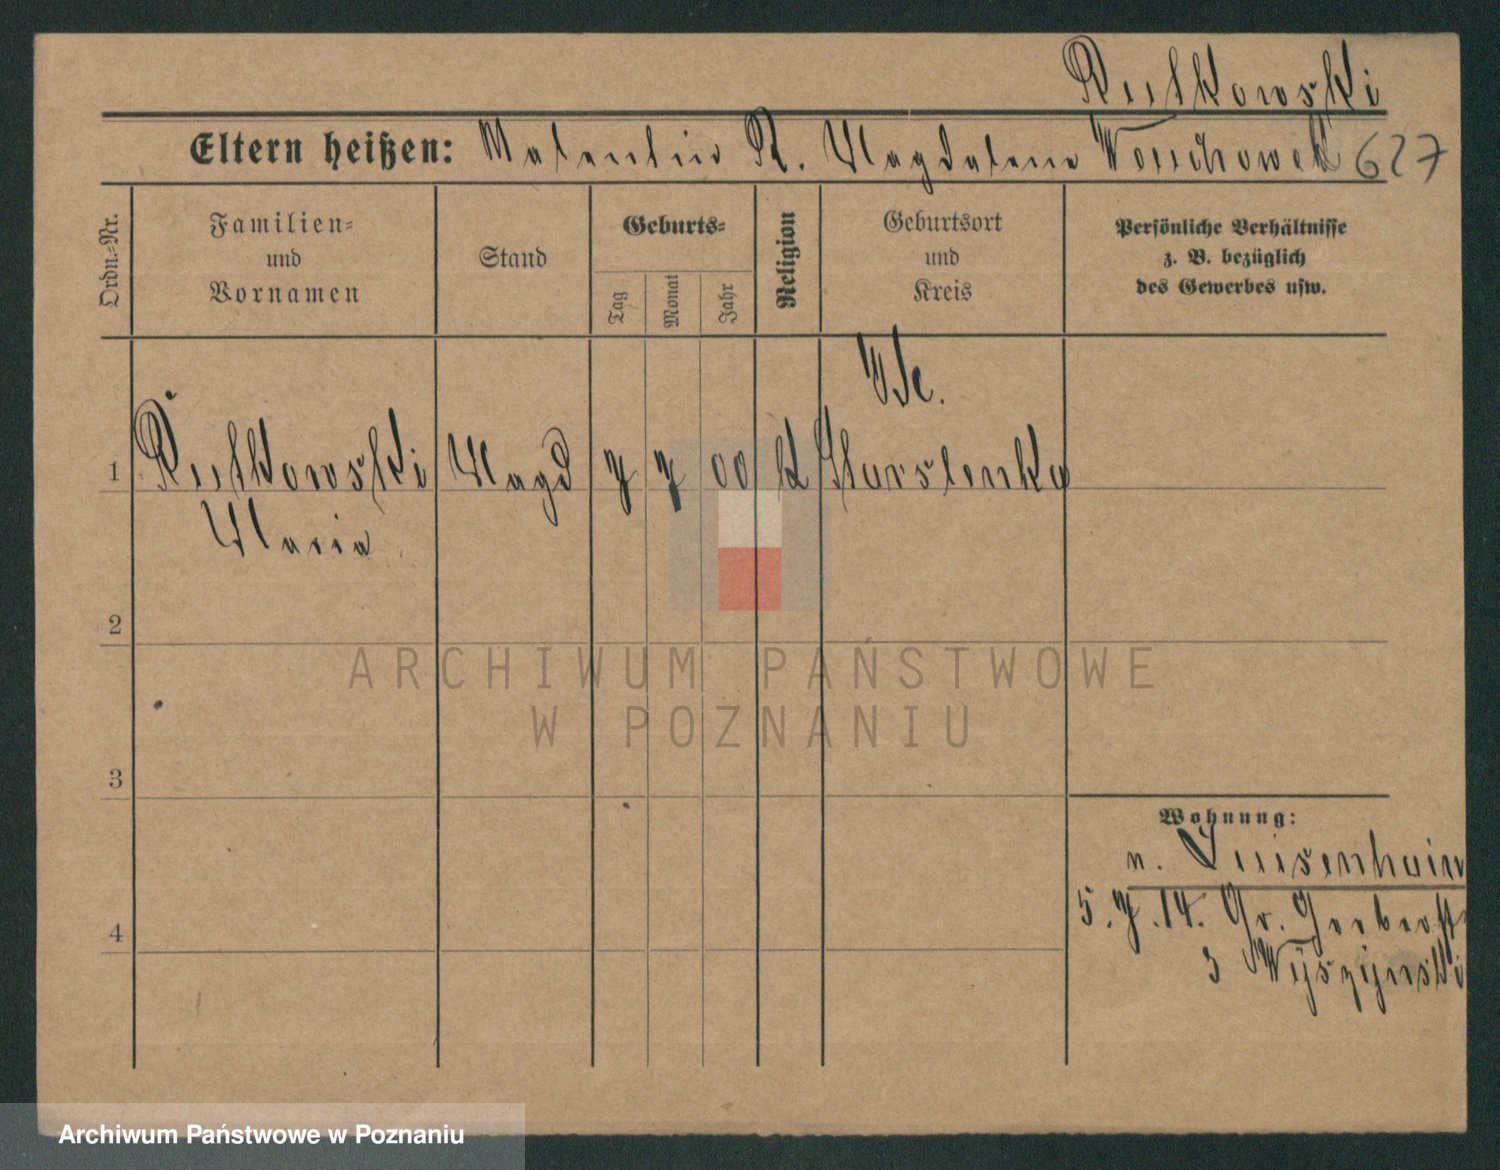 Rutkowski
Eltern heißen: Valentin R. Magdalena 627
Ordn.-Nr.
Familien-
und
Vornamen
Stand
Geburts-
Tag
Monat
Jahr
Religion
Geburtsort
und
Kreis
Persönliche Verhältnisse
z. B. bezüglich
des Gewerbes usw.
1 Rutkowski Magd 7 7 00 k
Maria
2
ARCHIWUM PAŃSTWOWE
W POZNANIU
3
Wohnung:
n. Luisenhain
5. 7. 14. Gr. Gerberst
3 Wyszynski
4
Archiwum Państwowe w Poznaniu